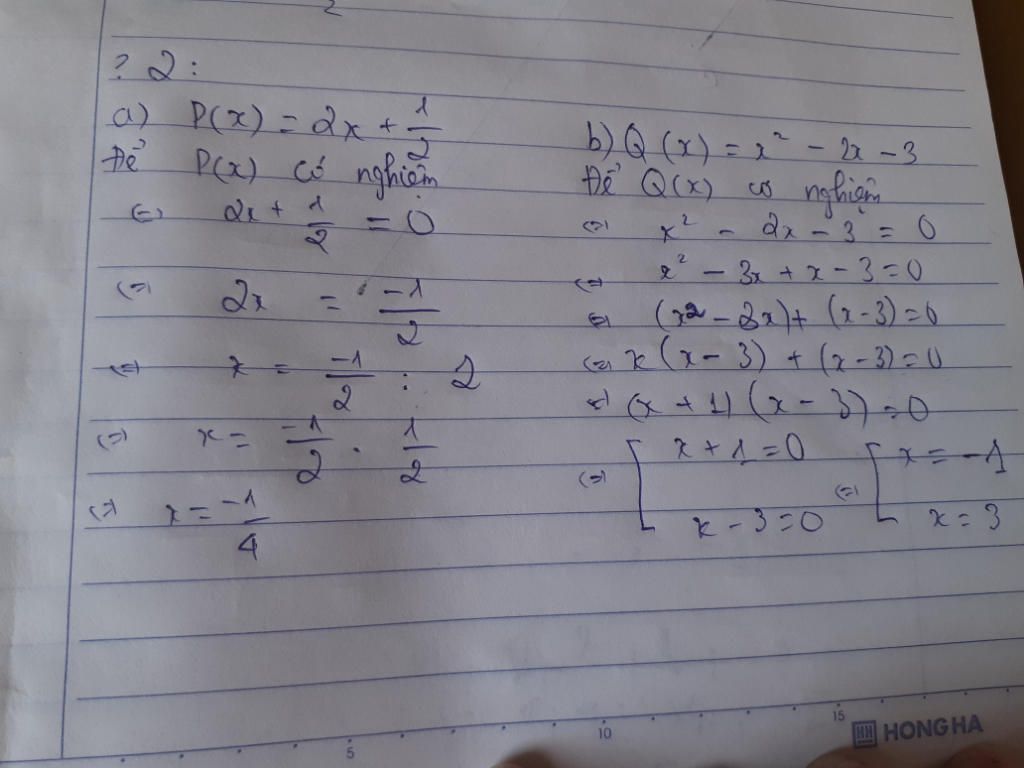 ? 2:
a) P(x) = 2x + 1/2
Để P(x) có nghiệm
<=> 2x + 1/2 = 0
<=> 2x = -1/2
<=> x = -1/2 : 2
<=> x = -1/2 . 1/2
<=> x = -1/4
b) Q(x) = x² - 2x - 3
Để Q(x) có nghiệm
<=> x² - 2x - 3 = 0
<=> x² - 3x + x - 3 = 0
<=> (x² - 3x) + (x - 3) = 0
<=> x(x - 3) + (x - 3) = 0
<=> (x + 1)(x - 3) = 0
<=> [ x + 1 = 0 <=> [ x = -1
x - 3 = 0 x = 3
5 10 15
HH HONG HA